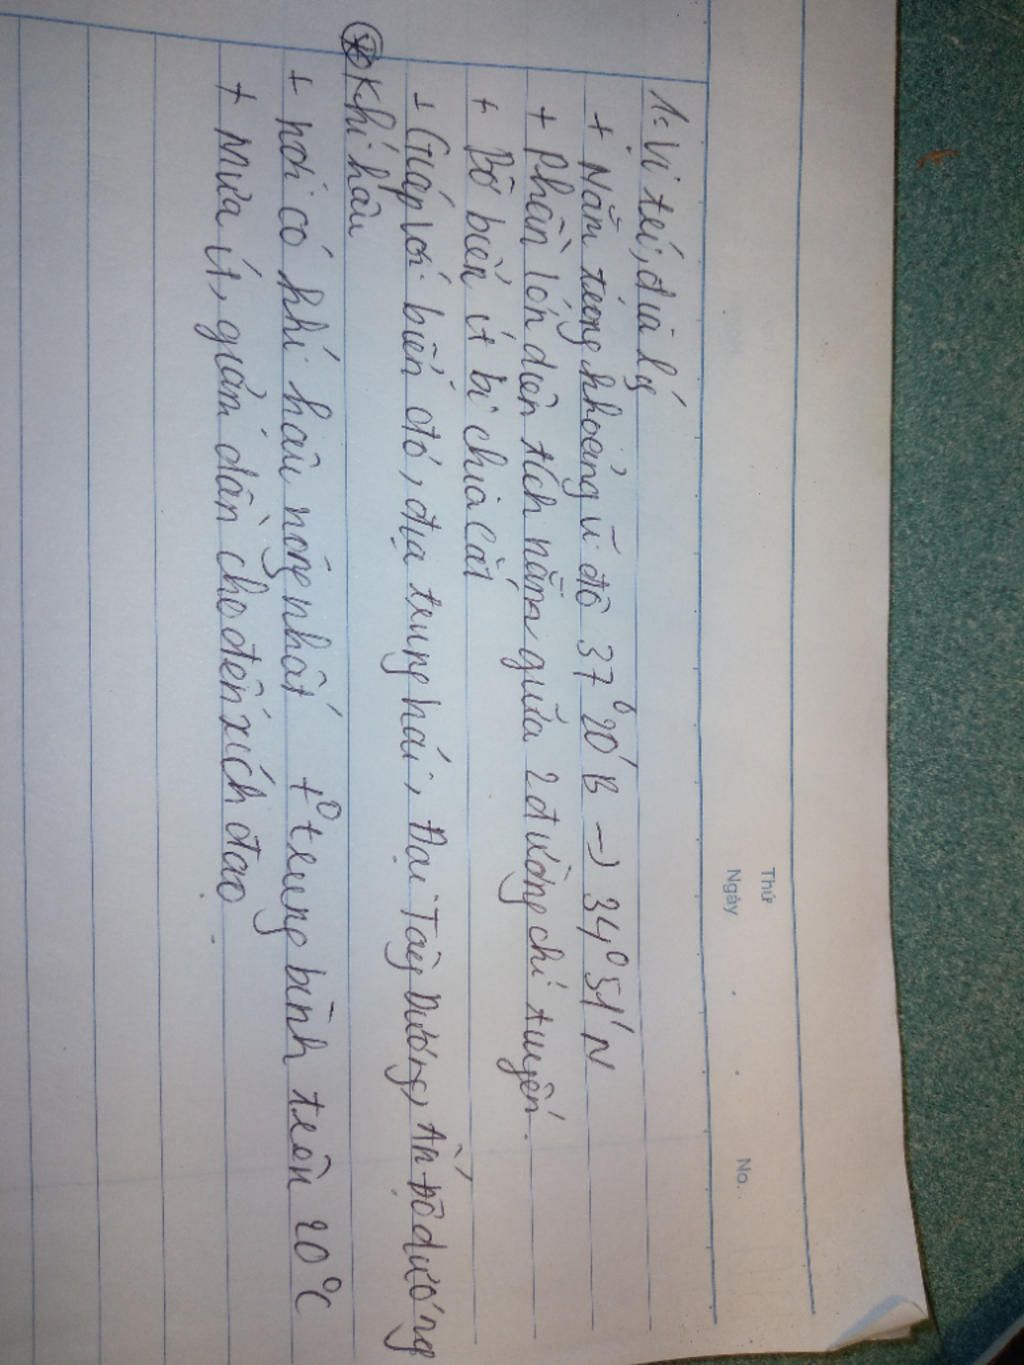 Thứ
Ngày
No.
1: Vị trí, địa lý
+ Nằm trong khoảng vĩ độ 37°20'B → 34°51'N
+ Phần lớn diện tích nằm giữa 2 đường chí tuyến.
+ Bờ biển ít bị chia cắt
+ Giáp với biển đỏ, địa trung hải, Đại Tây Dương, Ấn Độ dương
* Khí hậu
+ nơi có khí hậu nóng nhất t° trung bình trên 20°C
+ Mưa ít, giảm dần cho đến xích đạo.